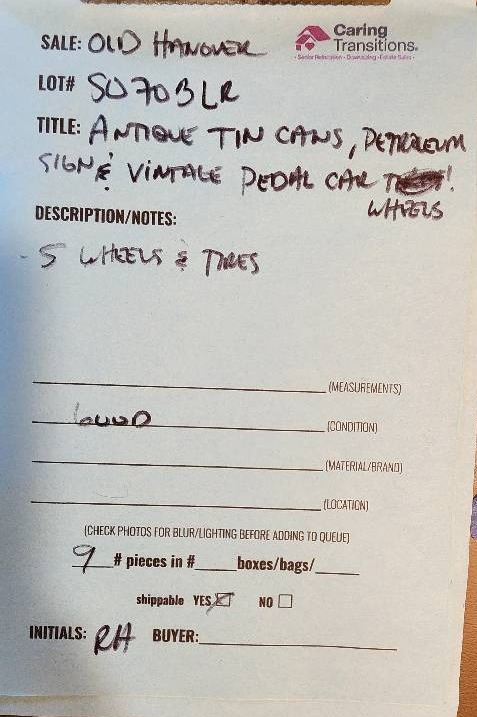 SALE: OLD HANOVER
Caring
Transitions®
• Senior Relocation • Downsizing • Estate Sales •
LOT# SU70BLR
TITLE: ANTIQUE TIN CANS, PETROLEUM
SIGN & VINTAGE PEDAL CAR
WHEELS
DESCRIPTION/NOTES:
- 5 WHEELS & TIRES
(MEASUREMENTS)
GOOD (CONDITION)
(MATERIAL/BRAND)
(LOCATION)
(CHECK PHOTOS FOR BLUR/LIGHTING BEFORE ADDING TO QUEUE)
9 # pieces in # boxes/bags/
shippable YES NO
INITIALS: RH BUYER: